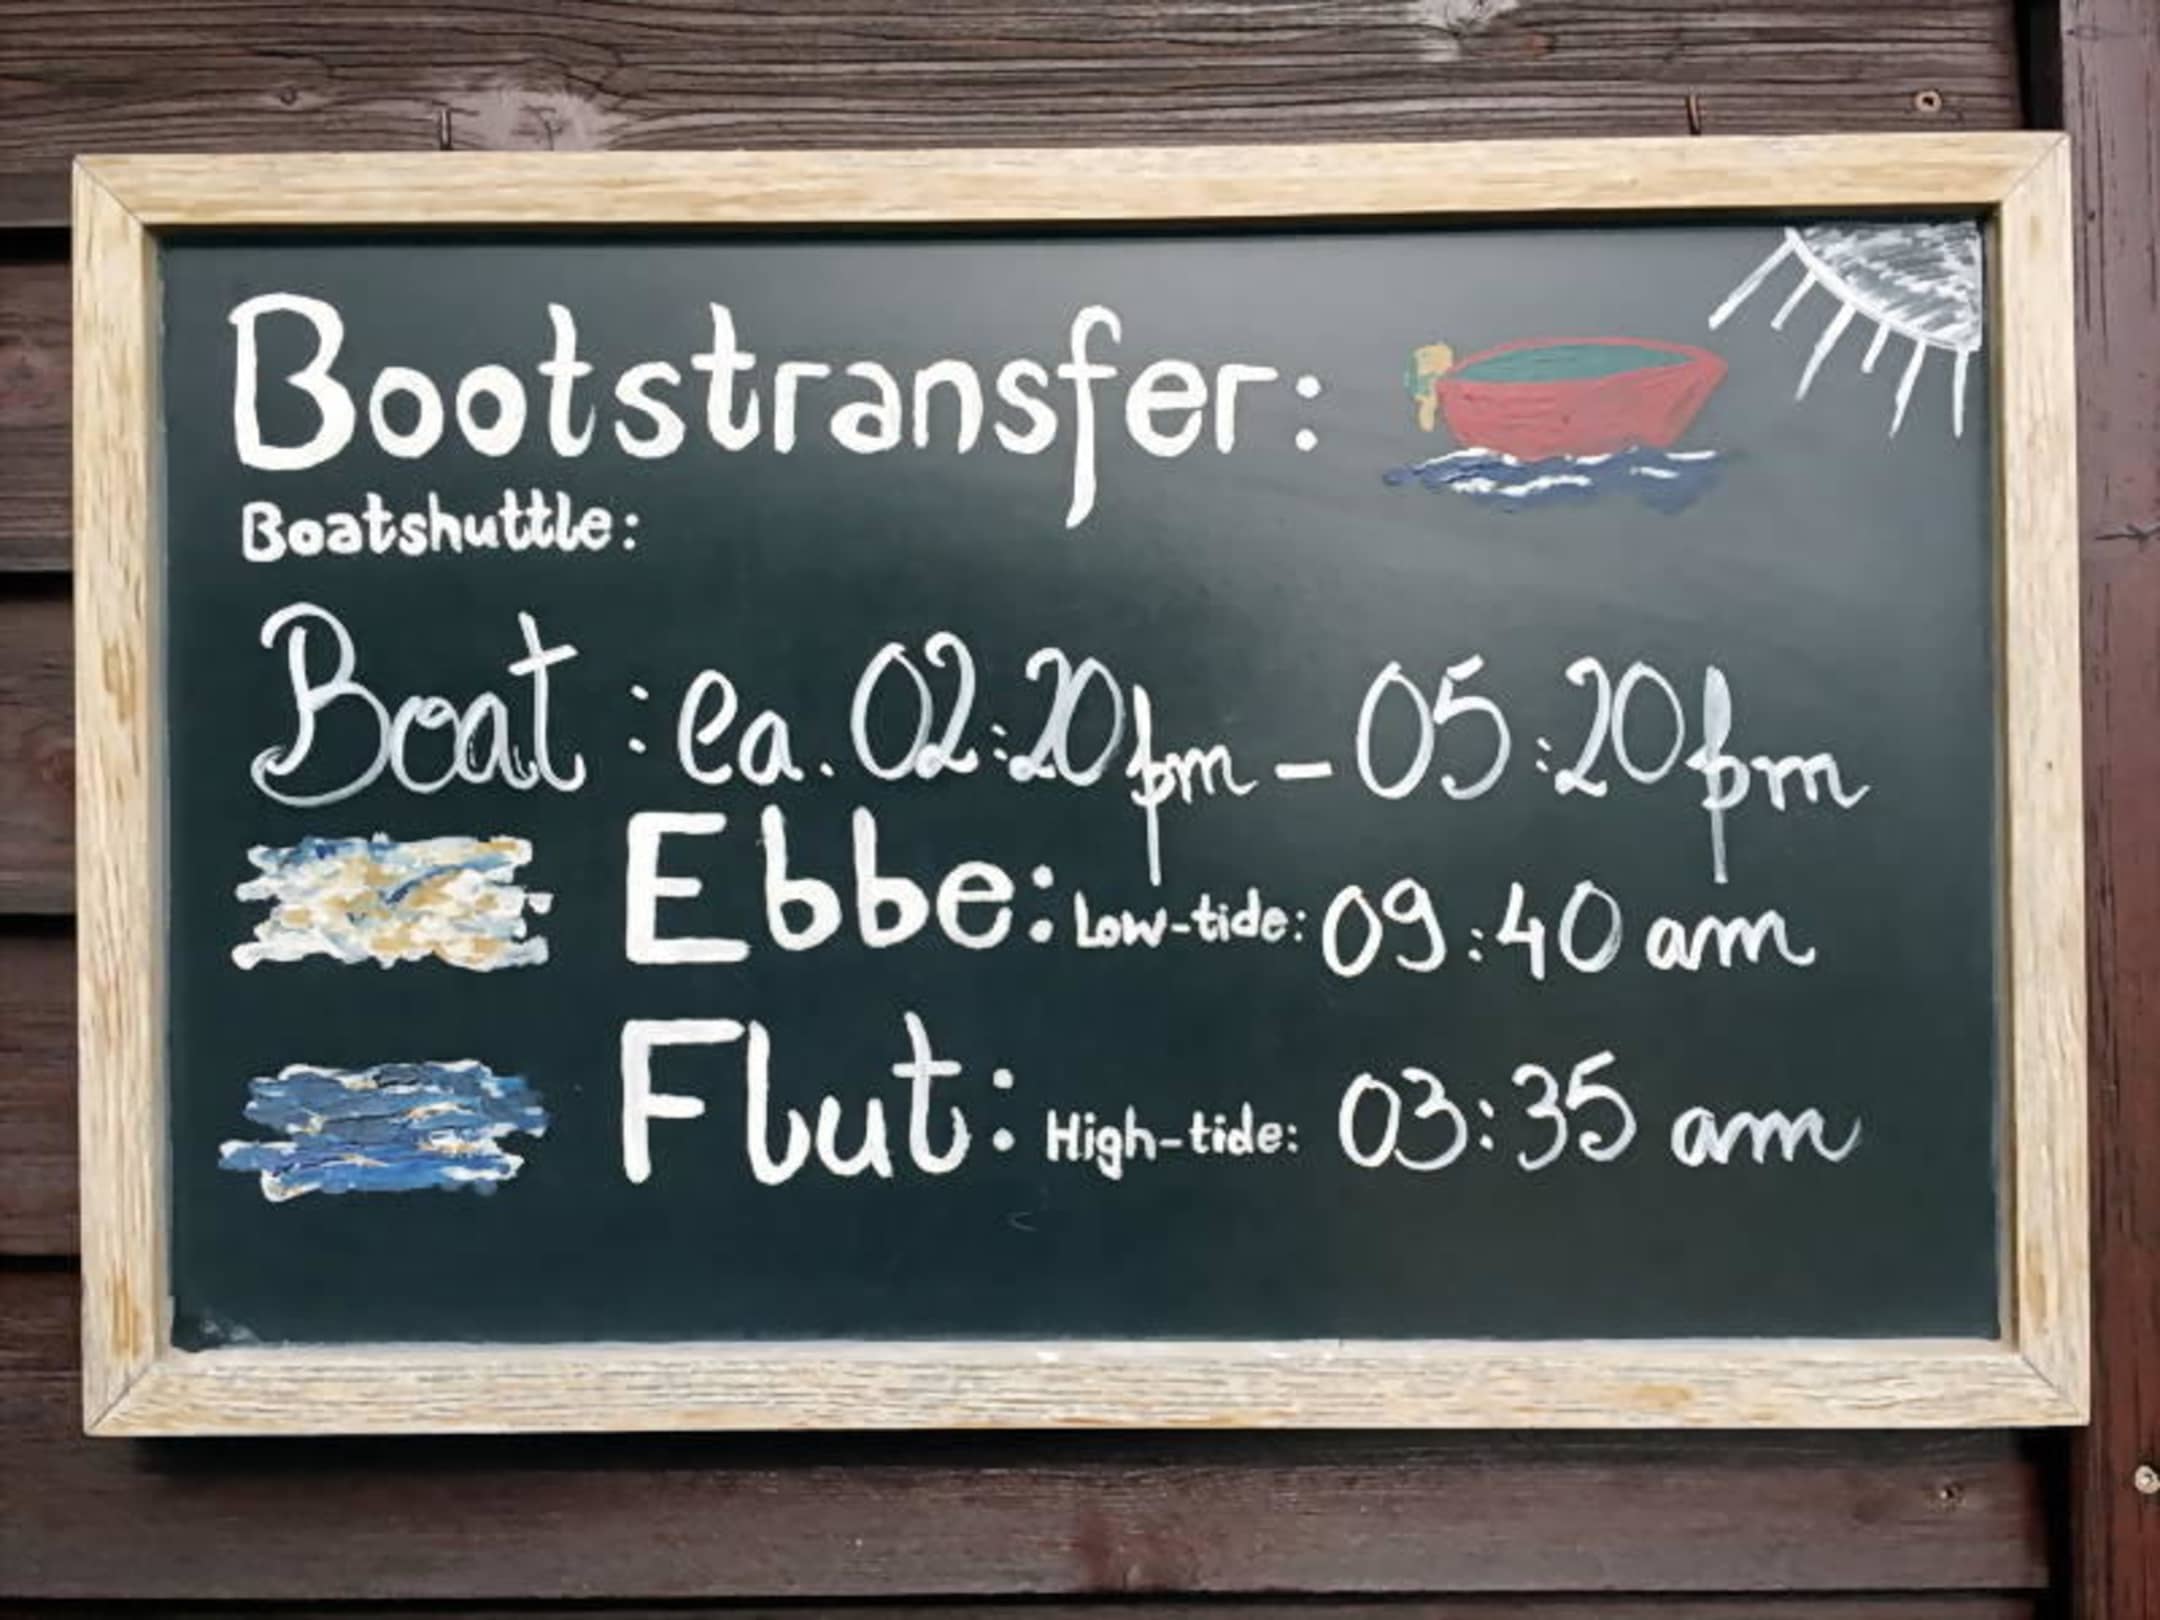 Bootstransfer:
Boatshuttle:
Boat : ca. 02:20pm – 05:20pm
Ebbe: Low-tide: 09:40 am
Flut: High-tide: 03:35 am